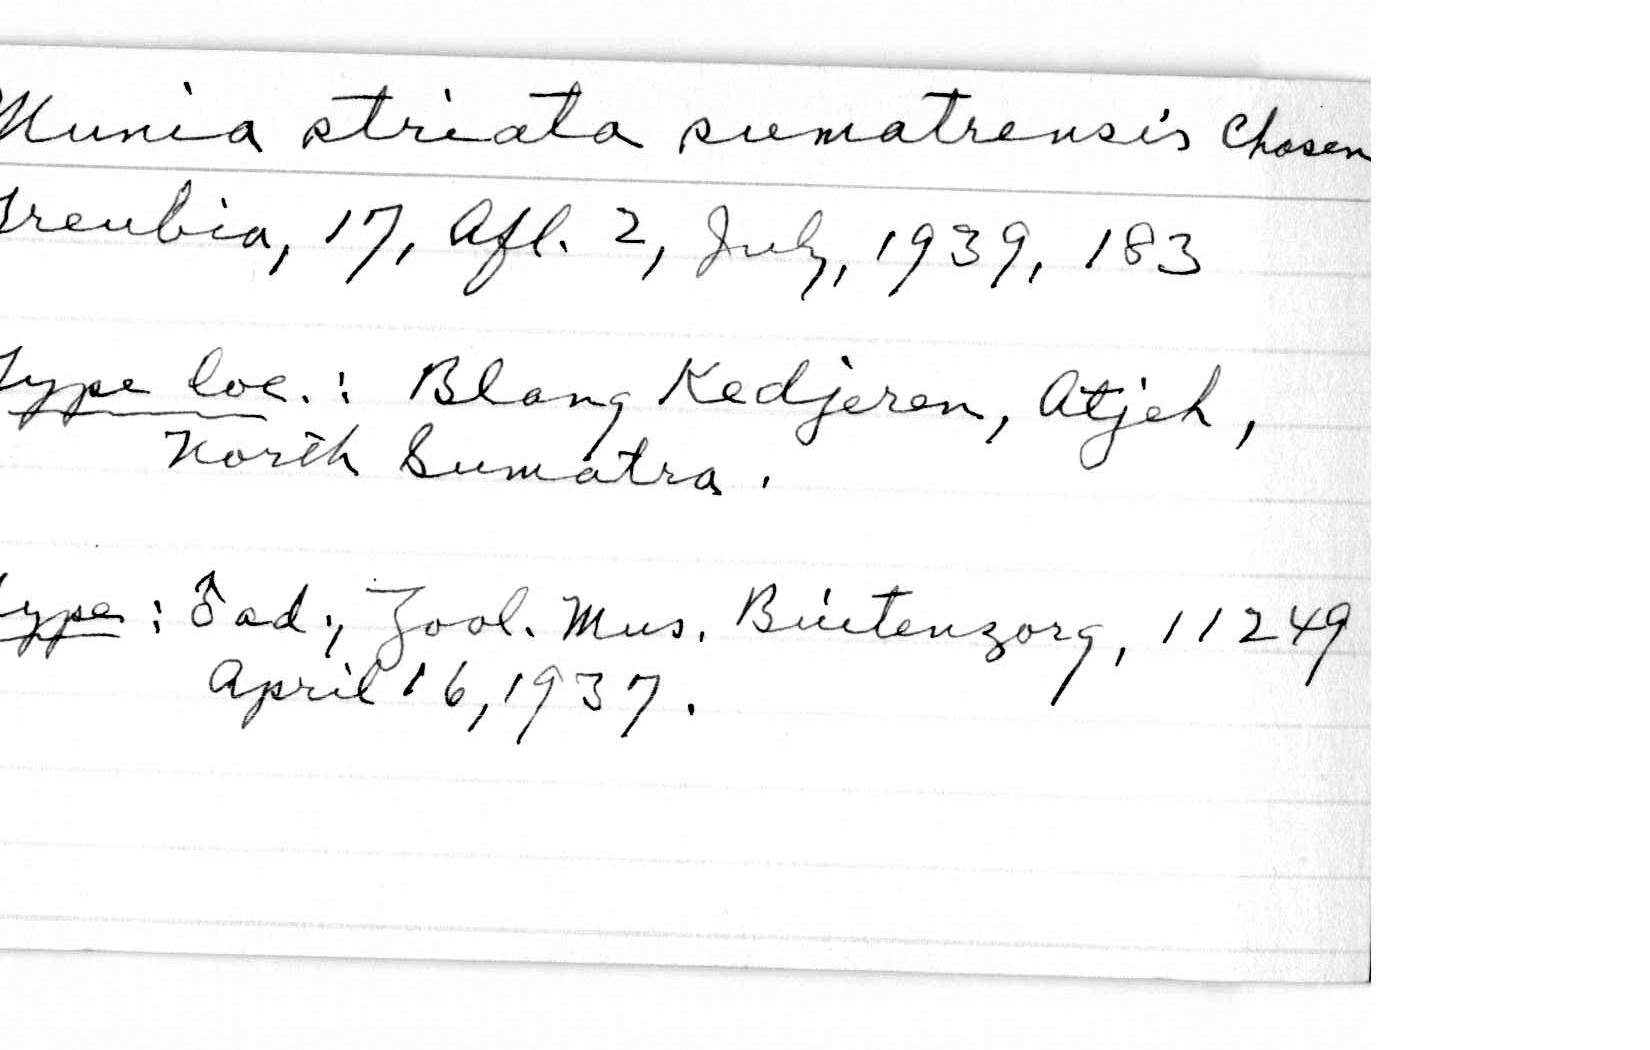 Munia striata sumatrensis Chasen
Treubia, 17, Afl. 2, July, 1939, 183
Type loc.: Blang Kedjeren, Atjeh,
North Sumatra.
Type: ♂ ad., Zool. Mus. Buitenzorg, 11249
April 16, 1937.